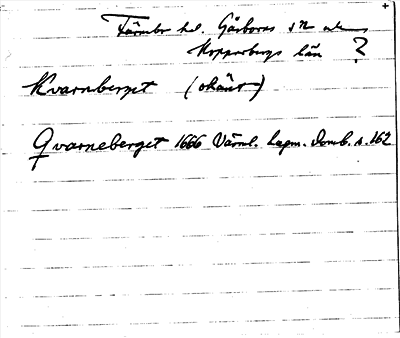 Färnebo hd. Gåsborns sn och
Kopparbergs län ?
Kvarnberget (okänt)
Qvarneberget 1666 Värml. Lagm. Domb. s. 162